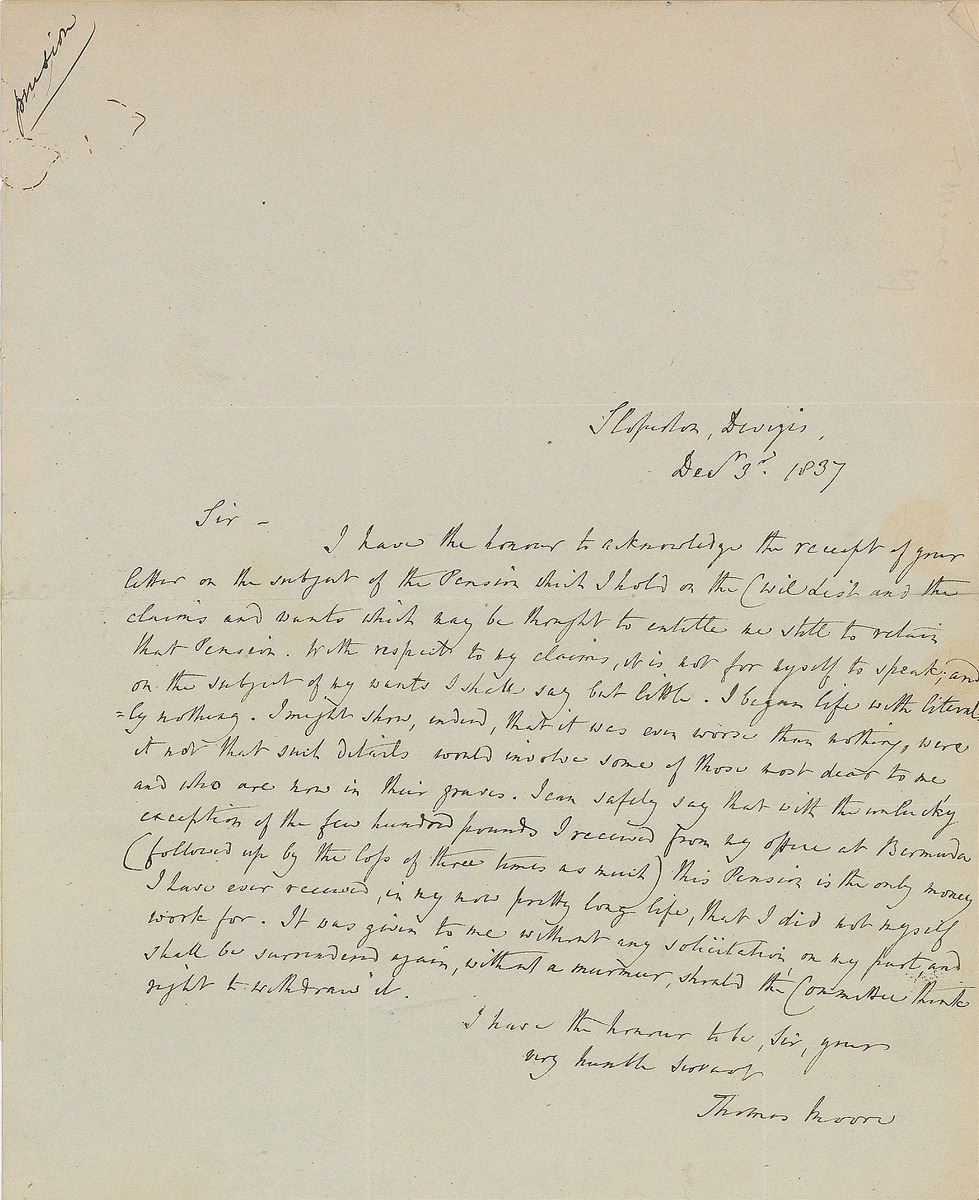 pension
Sloperton, Devizes,
Decr 3d. 1837
Sir -
I have the honour to acknowledge the receipt of your
letter on the subject of the Pension which I hold on the Civil List and the
claims and wants which may be thought to entitle me still to retain
that Pension. With respect to my claims, it is not for myself to speak; and
on the subject of my wants I shall say but little. I began life with literal
=ly nothing. I might show, indeed, that it was even worse than nothing, were
it not that such details would involve some of those most dear to me
and who are now in their graves. I can safely say that with the unlucky
exception of the few hundred pounds I received from my office at Bermuda
(followed up by the loss of three times as much) this Pension is the only money
I have ever received, in my now pretty long life, that I did not myself
work for. It was given to me without any solicitation on my part, and
shall be surrendered again, without a murmur, should the Committee think
right to withdraw it.
I have the honour to be, Sir, your
very humble servant
Thomas Moore